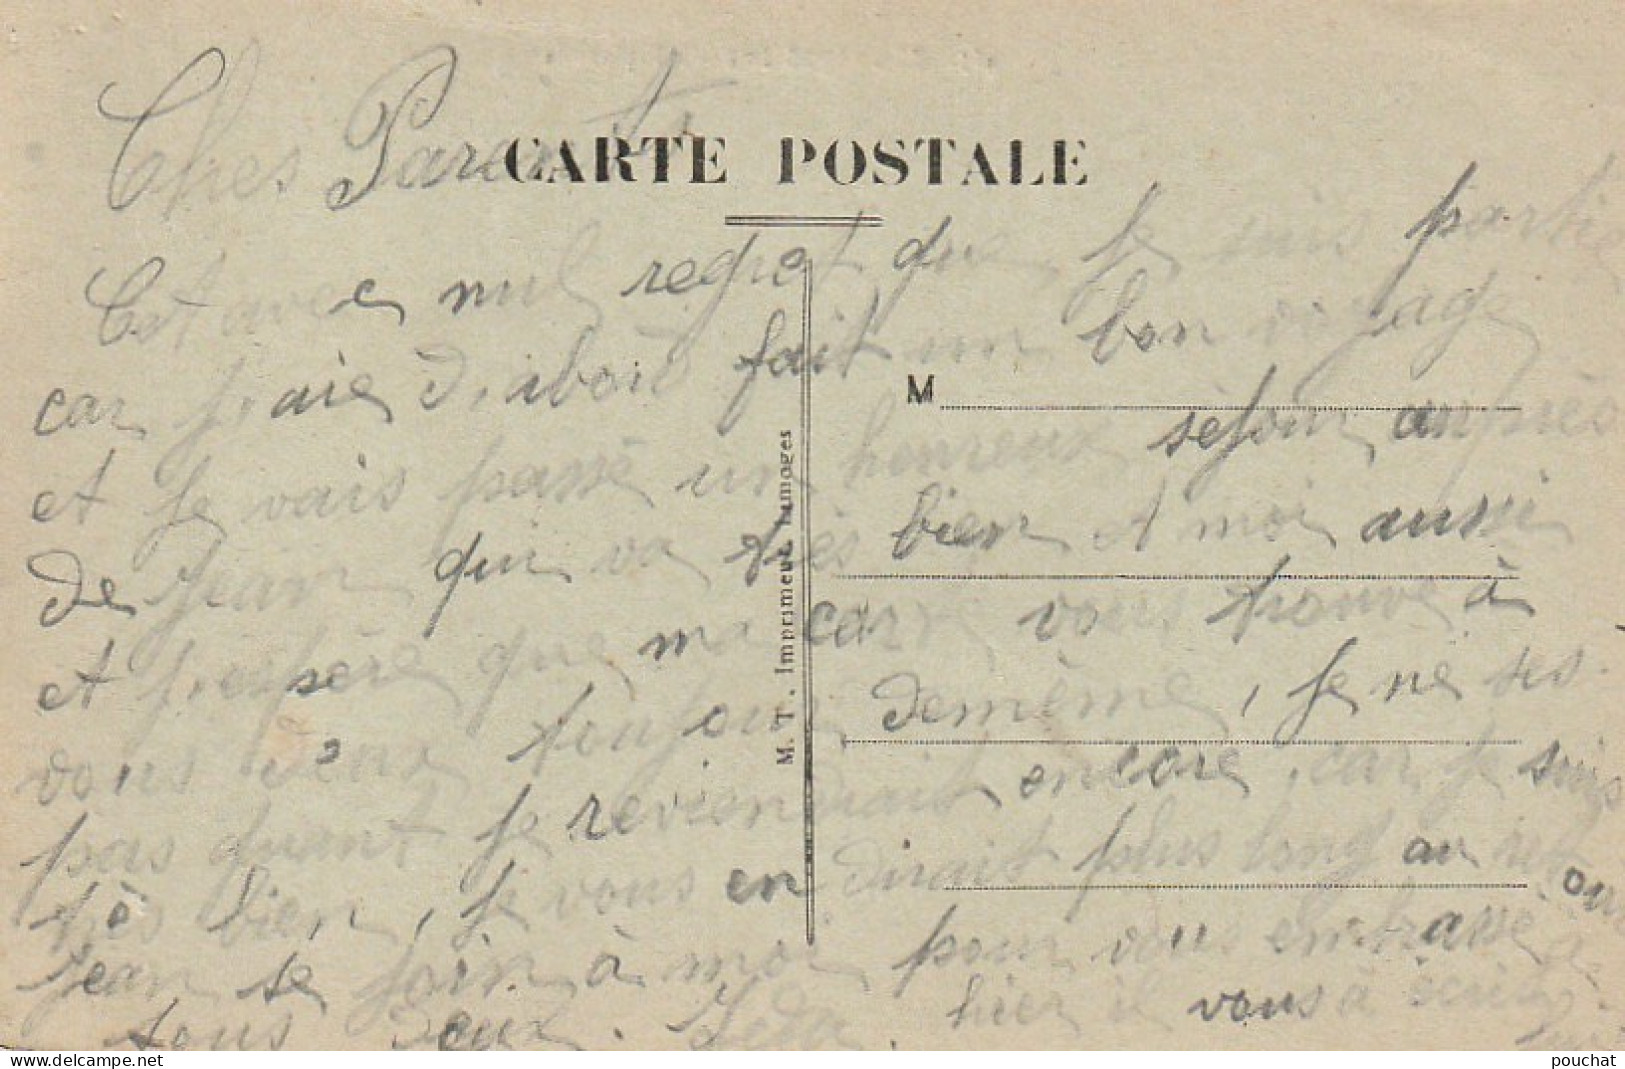 CARTE POSTALE
Chers Parents
C'et avec mil regret que je suis partie
car j,aie d,aboid fait un bon voyage
M
et je vais passé un heureux séjour auprès
de Jean qui va très bien et moi aussi
et j,espère que ma carte vous trouve à
vous deux toujour demème, je ne ses
pas quant je reviendrait encore, car je suis
très bien, je vous en dirait plus long au retour
Jean se join à moi pour vous embrassé
tous deux. Leda. hier il vous à écrit
M. T. Imprimeur Limoges
delcampe.net
pouchat